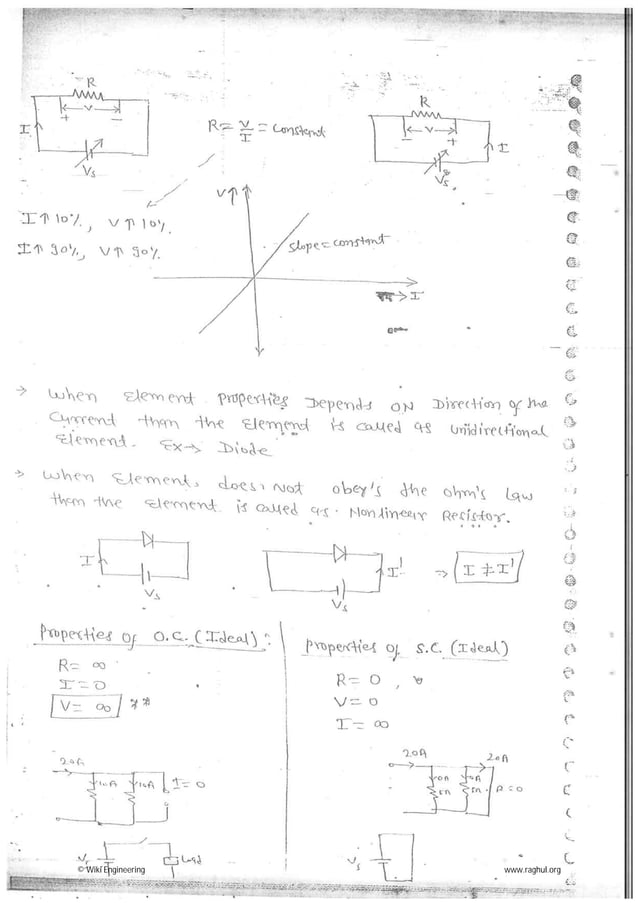 R
+ V -
I
Vs
R = V/I = constant
R
- V +
I
Vs
I↑10%, V↑10%.
I↑90%, V↑90%.
V↑
slope = constant
→ I
→ When Element Properties Depends ON Direction of the
Current than the Element is called as unidirectional
Element. Ex→ Diode
→ When Element, does, Not obey's the ohm's Law
than the Element is called as. Nonlinear Resistor.
I
Vs
I'
Vs
⇒ I ≠ I'
Properties of O.C. (Ideal):
R = ∞
I = 0
V = ∞ **
20A
10A
10A
I = 0
Load
Properties of S.C. (Ideal)
R = 0,
V = 0
I = ∞
20A
20A
R = 0
Vs
© Wiki Engineering
www.raghul.org